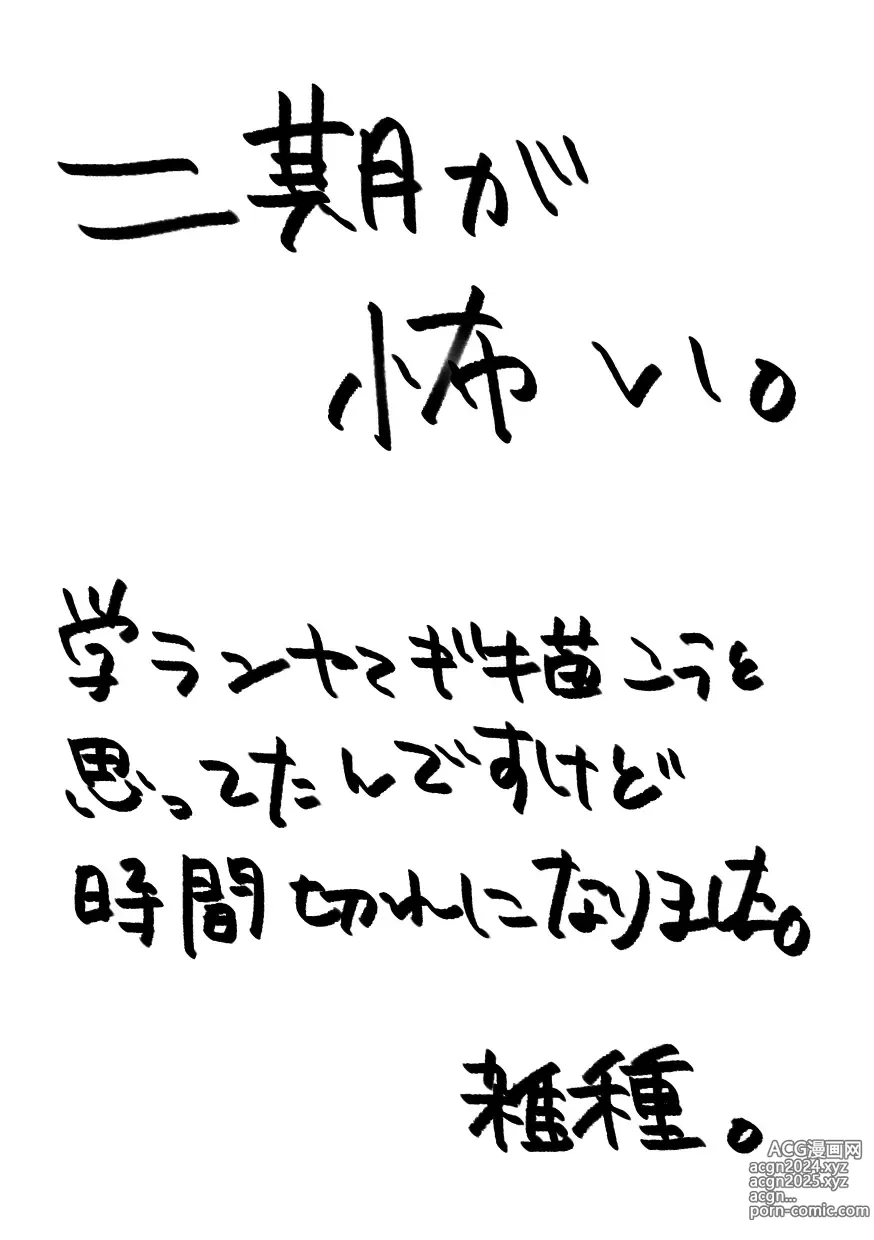 二期が
怖い。
学ランヤてギ描こうと
思ってたんですけど
時間切れになりました。
雑種。
ACG漫画网
acgn2024.xyz
acgn2025.xyz
acgn...
porn-comic.com